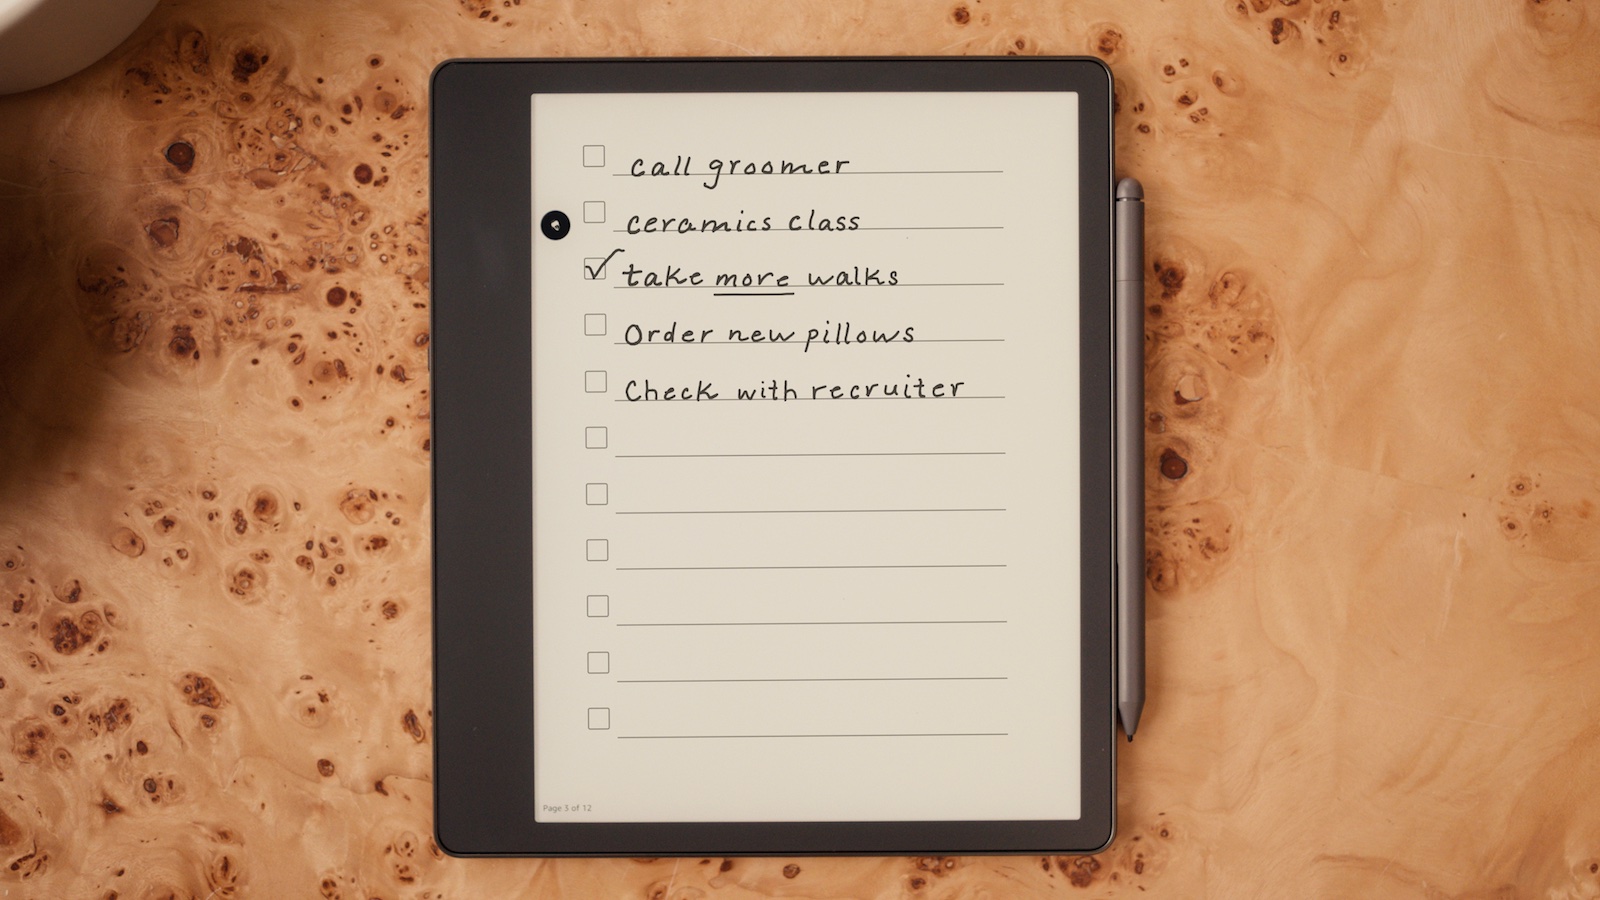 call groomer
ceramics class
take more walks
Order new pillows
Check with recruiter
Page 3 of 12